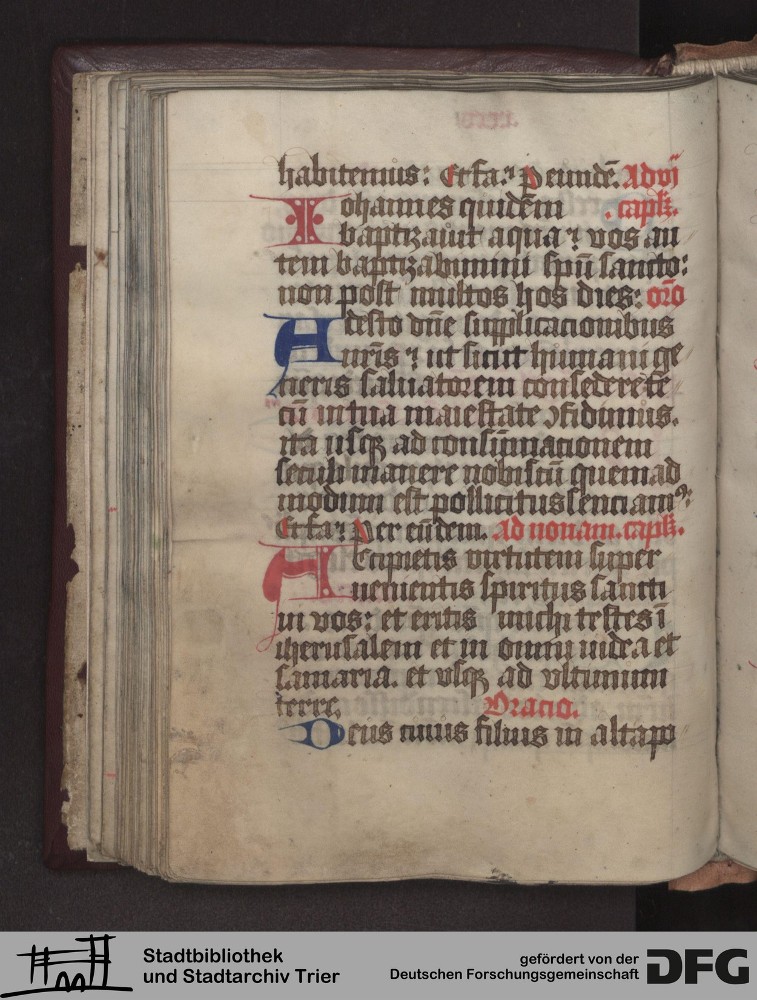 habitemus: Et fa.² P eundē. Ad vj
Iohannes quidem . caplm̄.
baptizauit aqua ⁊ vos au
tem baptizabimini spū sancto:
non post multos hos dies: or̄o
Adesto dn̄e supplicacionibus
nr̄is ⁊ ut sicut humani ge
neris saluatorem consedere te
cū in tua maiestate ꝯfidimus.
ita usqꝫ ad consūmacionem
seculi manere nobiscū quemad
modum est pollicitus senciamꝰ:
Et fa² Per eūdem. Ad nonam. caplm̄.
Accipietis virtutem super
uenientis spiritus sancti
in vos: et eritis michi testes ī
iherusalem et in omni iudea et
samaria. et vsqꝫ ad vltimum
terre. Oracio.
Deus cuius filius in alta po
Stadtbibliothek
und Stadtarchiv Trier
gefördert von der
Deutschen Forschungsgemeinschaft
DFG